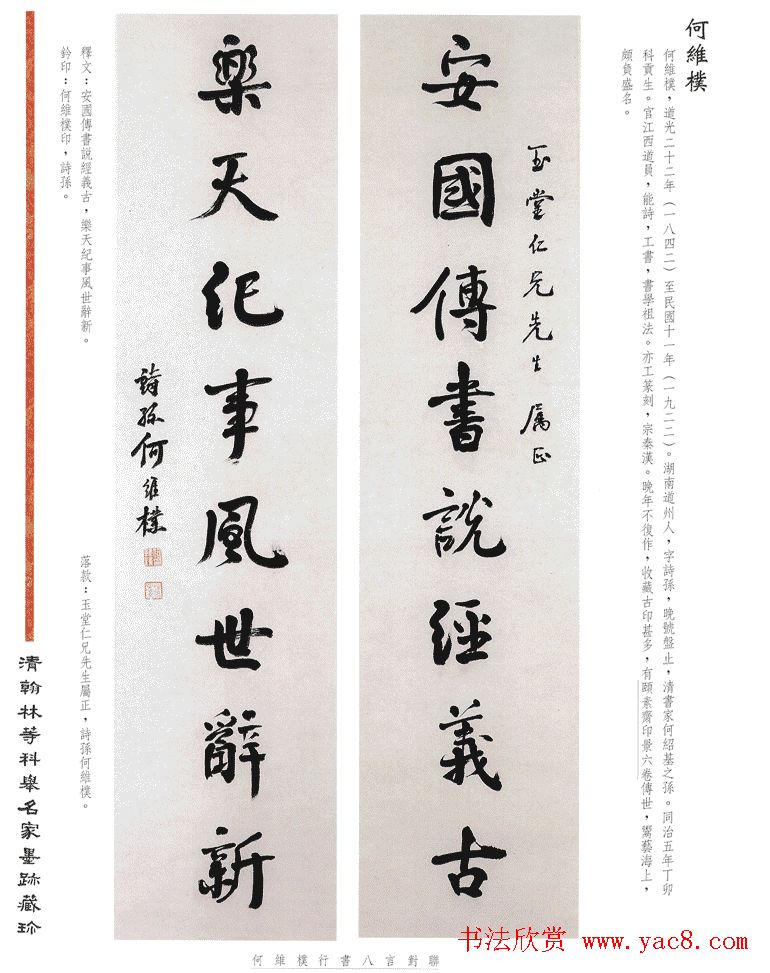 何維樸
何維樸，道光二十二年（一八四二）至民國十一年（一九二二）。湖南道州人，字詩孫，晚號盤止，清書家何紹基之孫。同治五年丁卯
科貢生。官江西道員，能詩，工書，書學祖法。亦工篆刻，宗秦漢。晚年不復作，收藏古印甚多，有頤素齋印景六卷傳世，鬻藝海上，
頗負盛名。
玉堂仁兄先生屬正
安國傳書說經義古
樂天紀事風世辭新
詩孫何維樸
釋文：安國傳書說經義古，樂天紀事風世辭新。
鈐印：何維樸印，詩孫。
落款：玉堂仁兄先生屬正，詩孫何維樸。
清翰林等科舉名家墨跡藏珍
何維樸行書八言對聯
书法欣赏 www.yac8.com